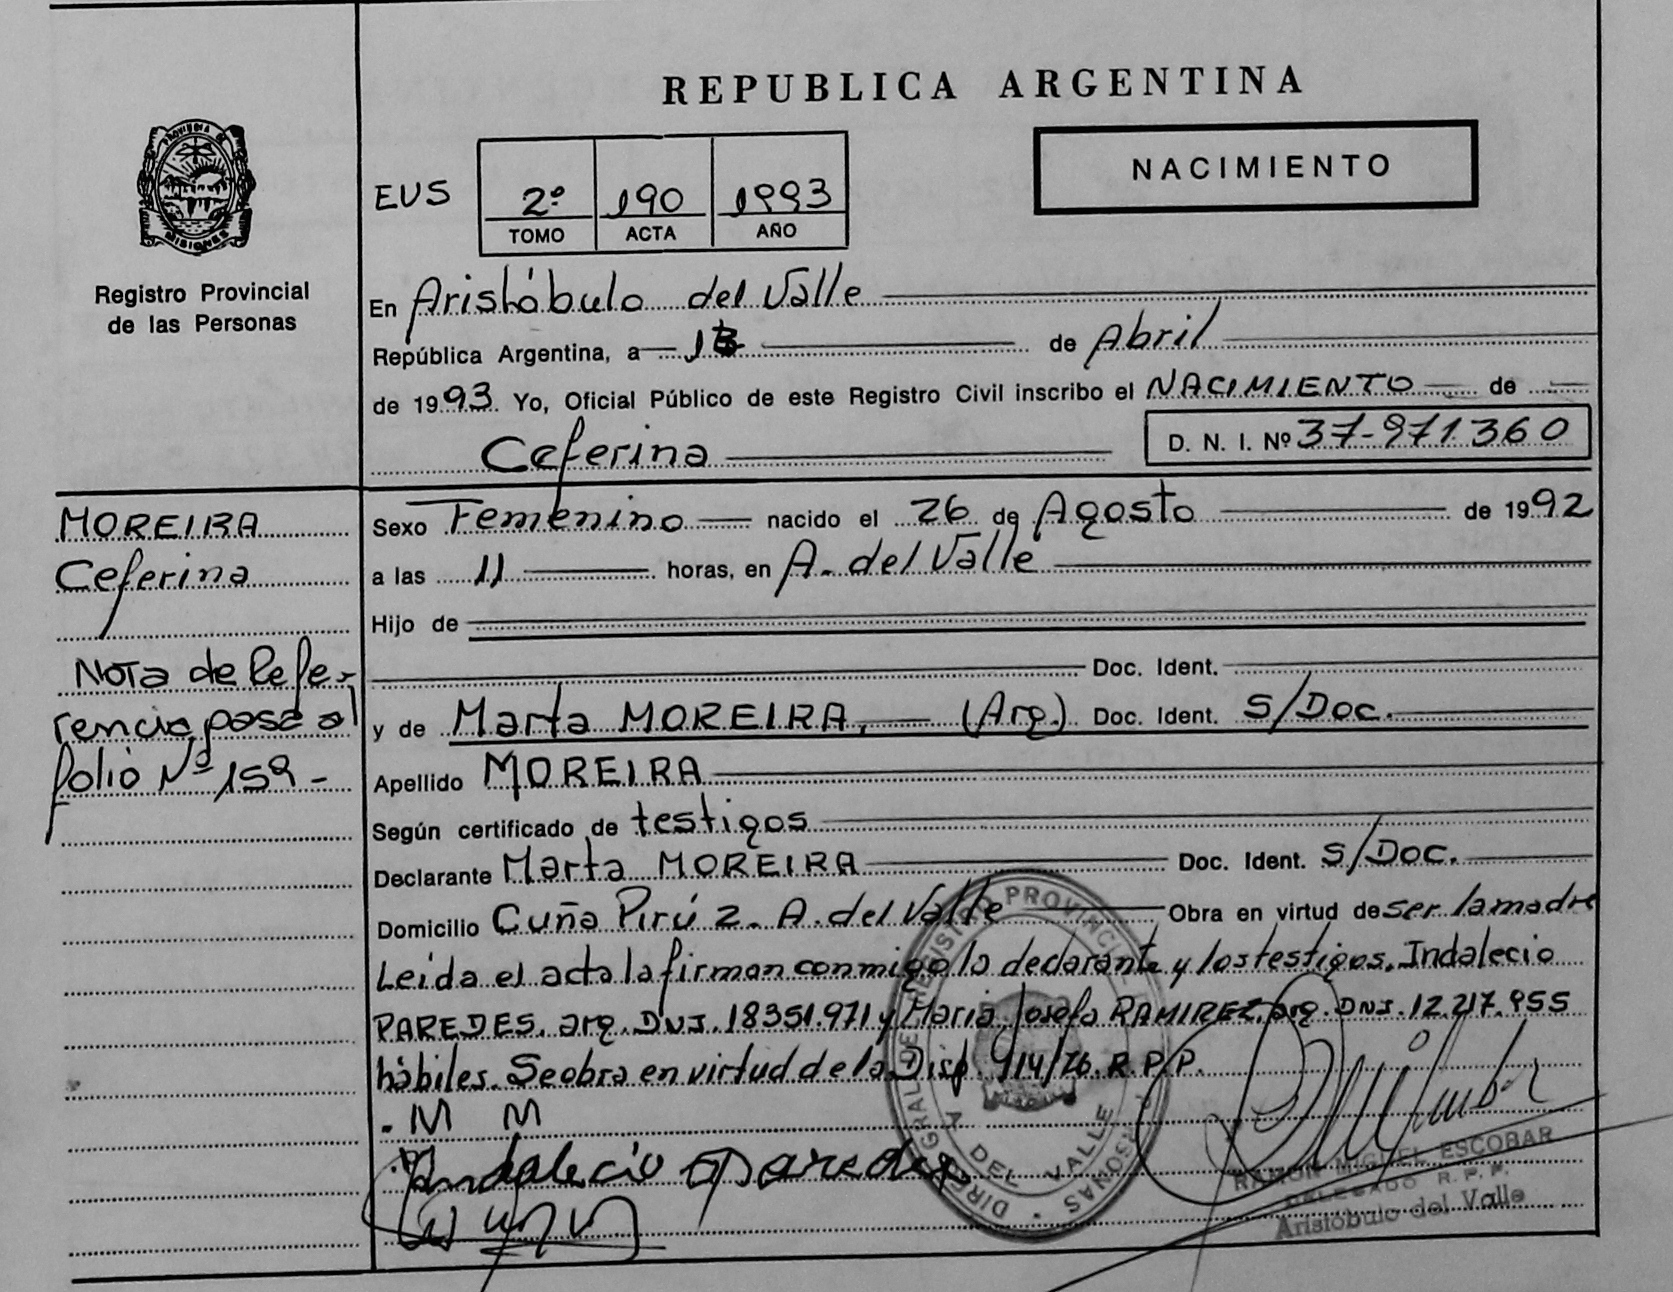 REPUBLICA ARGENTINA
PROVINCIA DE
MISIONES
Registro Provincial
de las Personas
EUS
2º 190 1993
TOMO ACTA AÑO
NACIMIENTO
En Aristóbulo del Valle
República Argentina, a de Abril
de 1993 Yo, Oficial Público de este Registro Civil inscribo el NACIMIENTO de
Ceferina D. N. I. Nº 37-971360
MOREIRA
Ceferina
Nota de Refe-
rencia pasa al
folio Nº 159-
Sexo Femenino nacido el 26 de Agosto de 1992
a las 11 horas, en A. del Valle
Hijo de
Doc. Ident.
y de Marta MOREIRA, (Arg.) Doc. Ident. S/Doc.
Apellido MOREIRA
Según certificado de testigos
Declarante Marta MOREIRA Doc. Ident. S/DOC.
Domicilio Cuña Pirú 2. A. del Valle Obra en virtud de ser la madre
Leída el acta la firman conmigo la declarante y los testigos. Indalecio
PAREDES. arg. DNI. 18351.971 y Maria Josefa RAMIREZ. arg. DNI. 12.217.955
hábiles. Se obra en virtud de la Disp. 914/76. R.P.P.
. M M
Indalecio Paredes
A DEL VALLE
RAMON MIGUEL ESCOBAR
DELEGADO R. P. P.
Aristóbulo del Valle